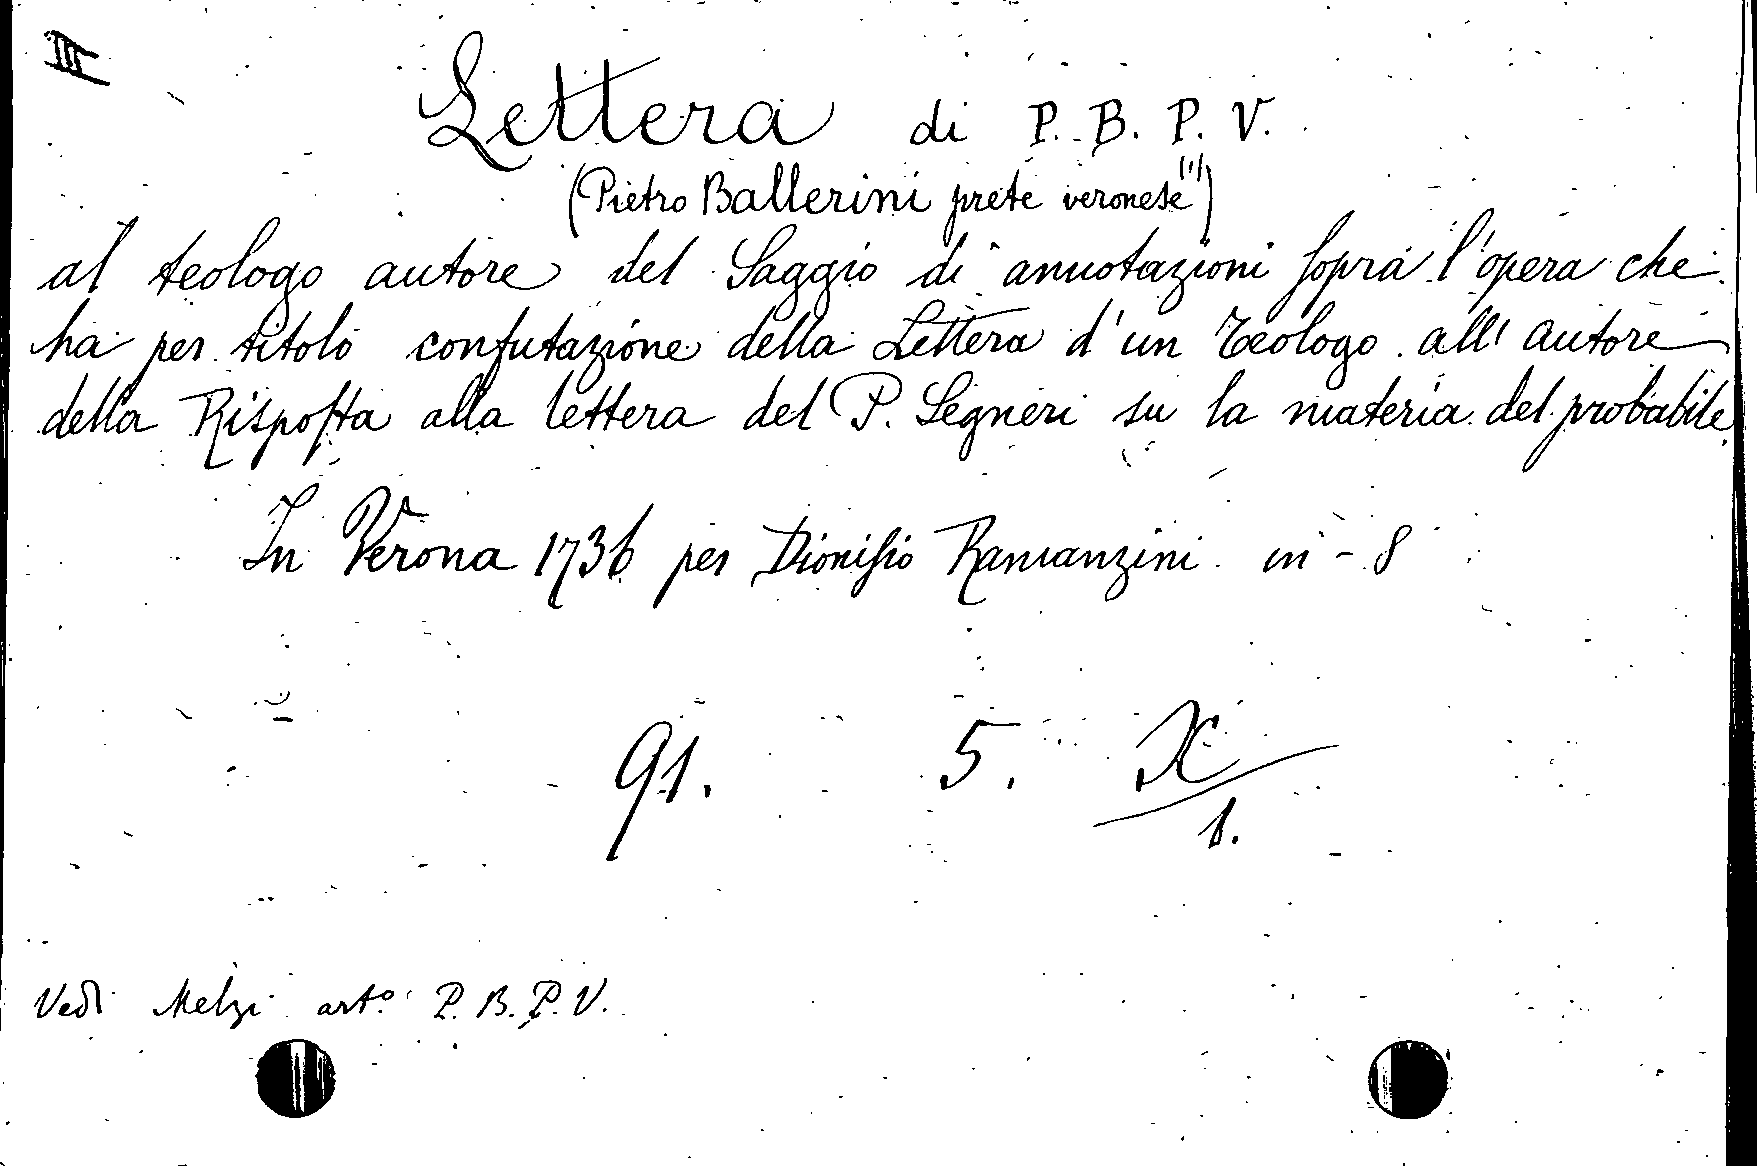 III
Lettera di P. B. P. V.
(Pietro Ballerini prete veronese (1))
al teologo autore del Saggio di annotazioni sopra l'opera che
ha per titolo confutazione della Lettera d'un Teologo all'autore
della Risposta alla lettera del P. Segneri su la materia del probabile
In Verona 1736 per Dionisio Ramanzini in-8
91. 5. X
1.
Vedi Melzi art.º P. B. P. V.